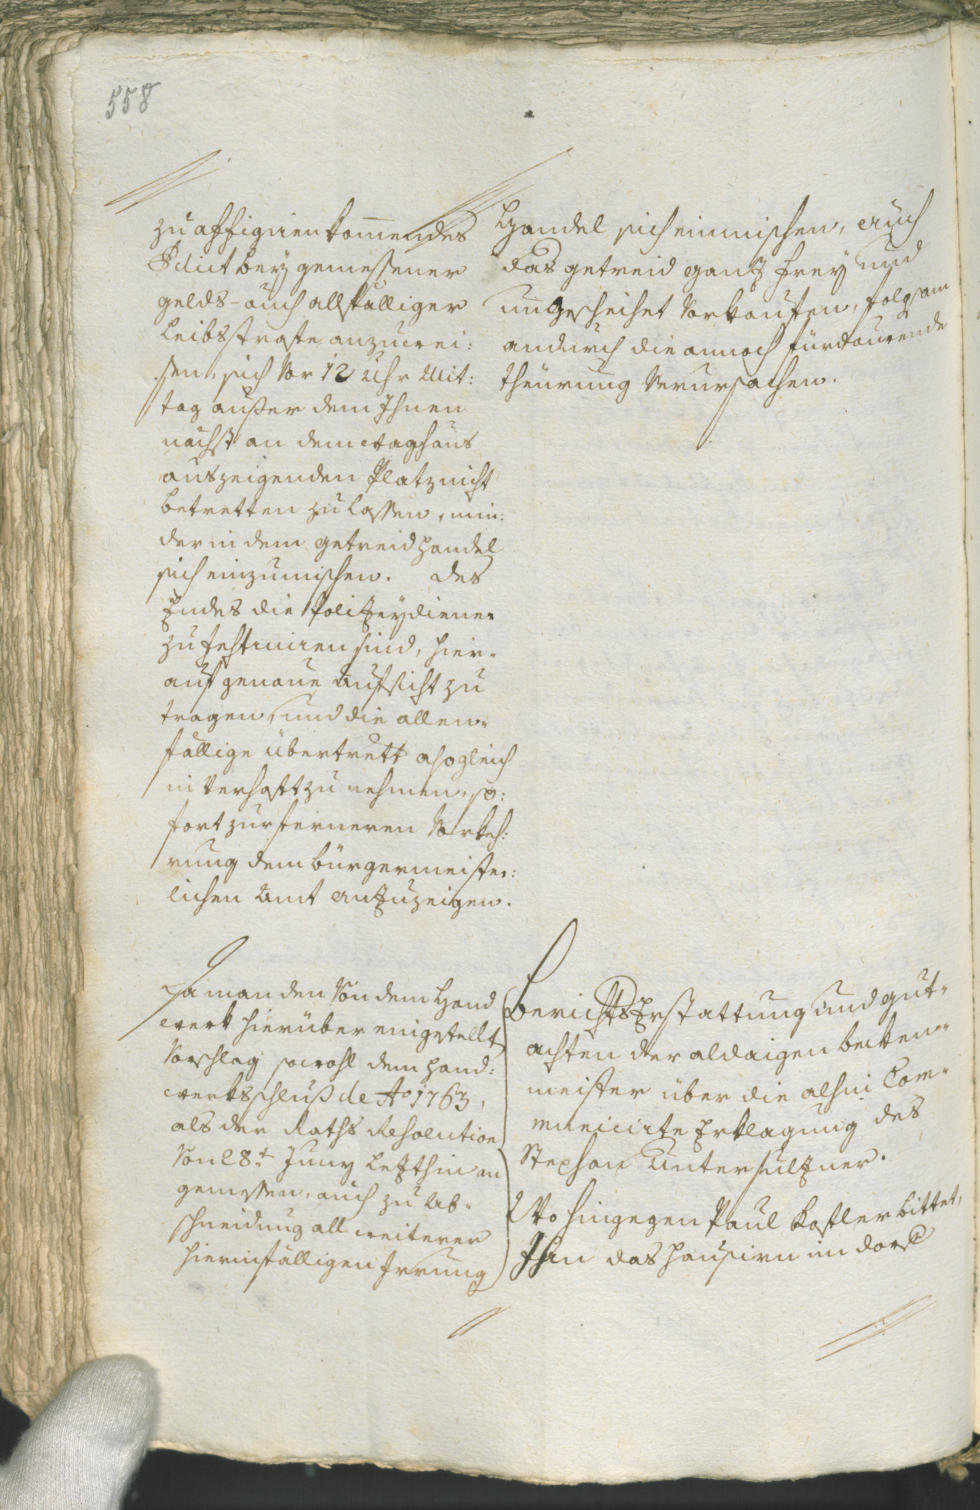 558
zu affigiren kom̅endes
Edict bey gemessener
gelds- auch allfälliger
Leibsstrafe anzuwei:
sen, sich vor 12 Uhr Mit:
tag außer dem Ihnen
nächst an dem waghaus
auszeigenden Platz nicht
betretten zu lassen, min:
der in dem getreid handel
sich einzumischen. des
Endes die Polizeydiener
zu Instruiren sind, hier-
auf genaue aufsicht zu
tragen, und die allen-
fällige übertrett alsogleich
in Verhafft zu nehmen, so:
fort zur ferneren Vorkeh:
rung dem bürgermeister:
lichen Amt anzuzeigen.
Handel sich einmischen, auch
das getreid gantz frey und
ungescheihet Vorkauffen, folgsam
andurch die annoch fürdaurende
theürung Verursachen.
Da man den Von dem Hand
werk hierüber eingestellt
Vorschlag sowohl dem Hand:
werksschluß de Ao 1763,
als der Raths Resolution
Von 28t Juny letzthin an
gemessen, auch zu Ab-
schneidung all weiterer
hierinfälligen Irrung
berichts Erstattung und gut-
achten der aldaigen becken-
meister über die alhin Com-
municirte Erklagung des
Stephan Untersulzner.
Wo hingegen Paul Kostler bittet,
Ihm das hausiren im dorf